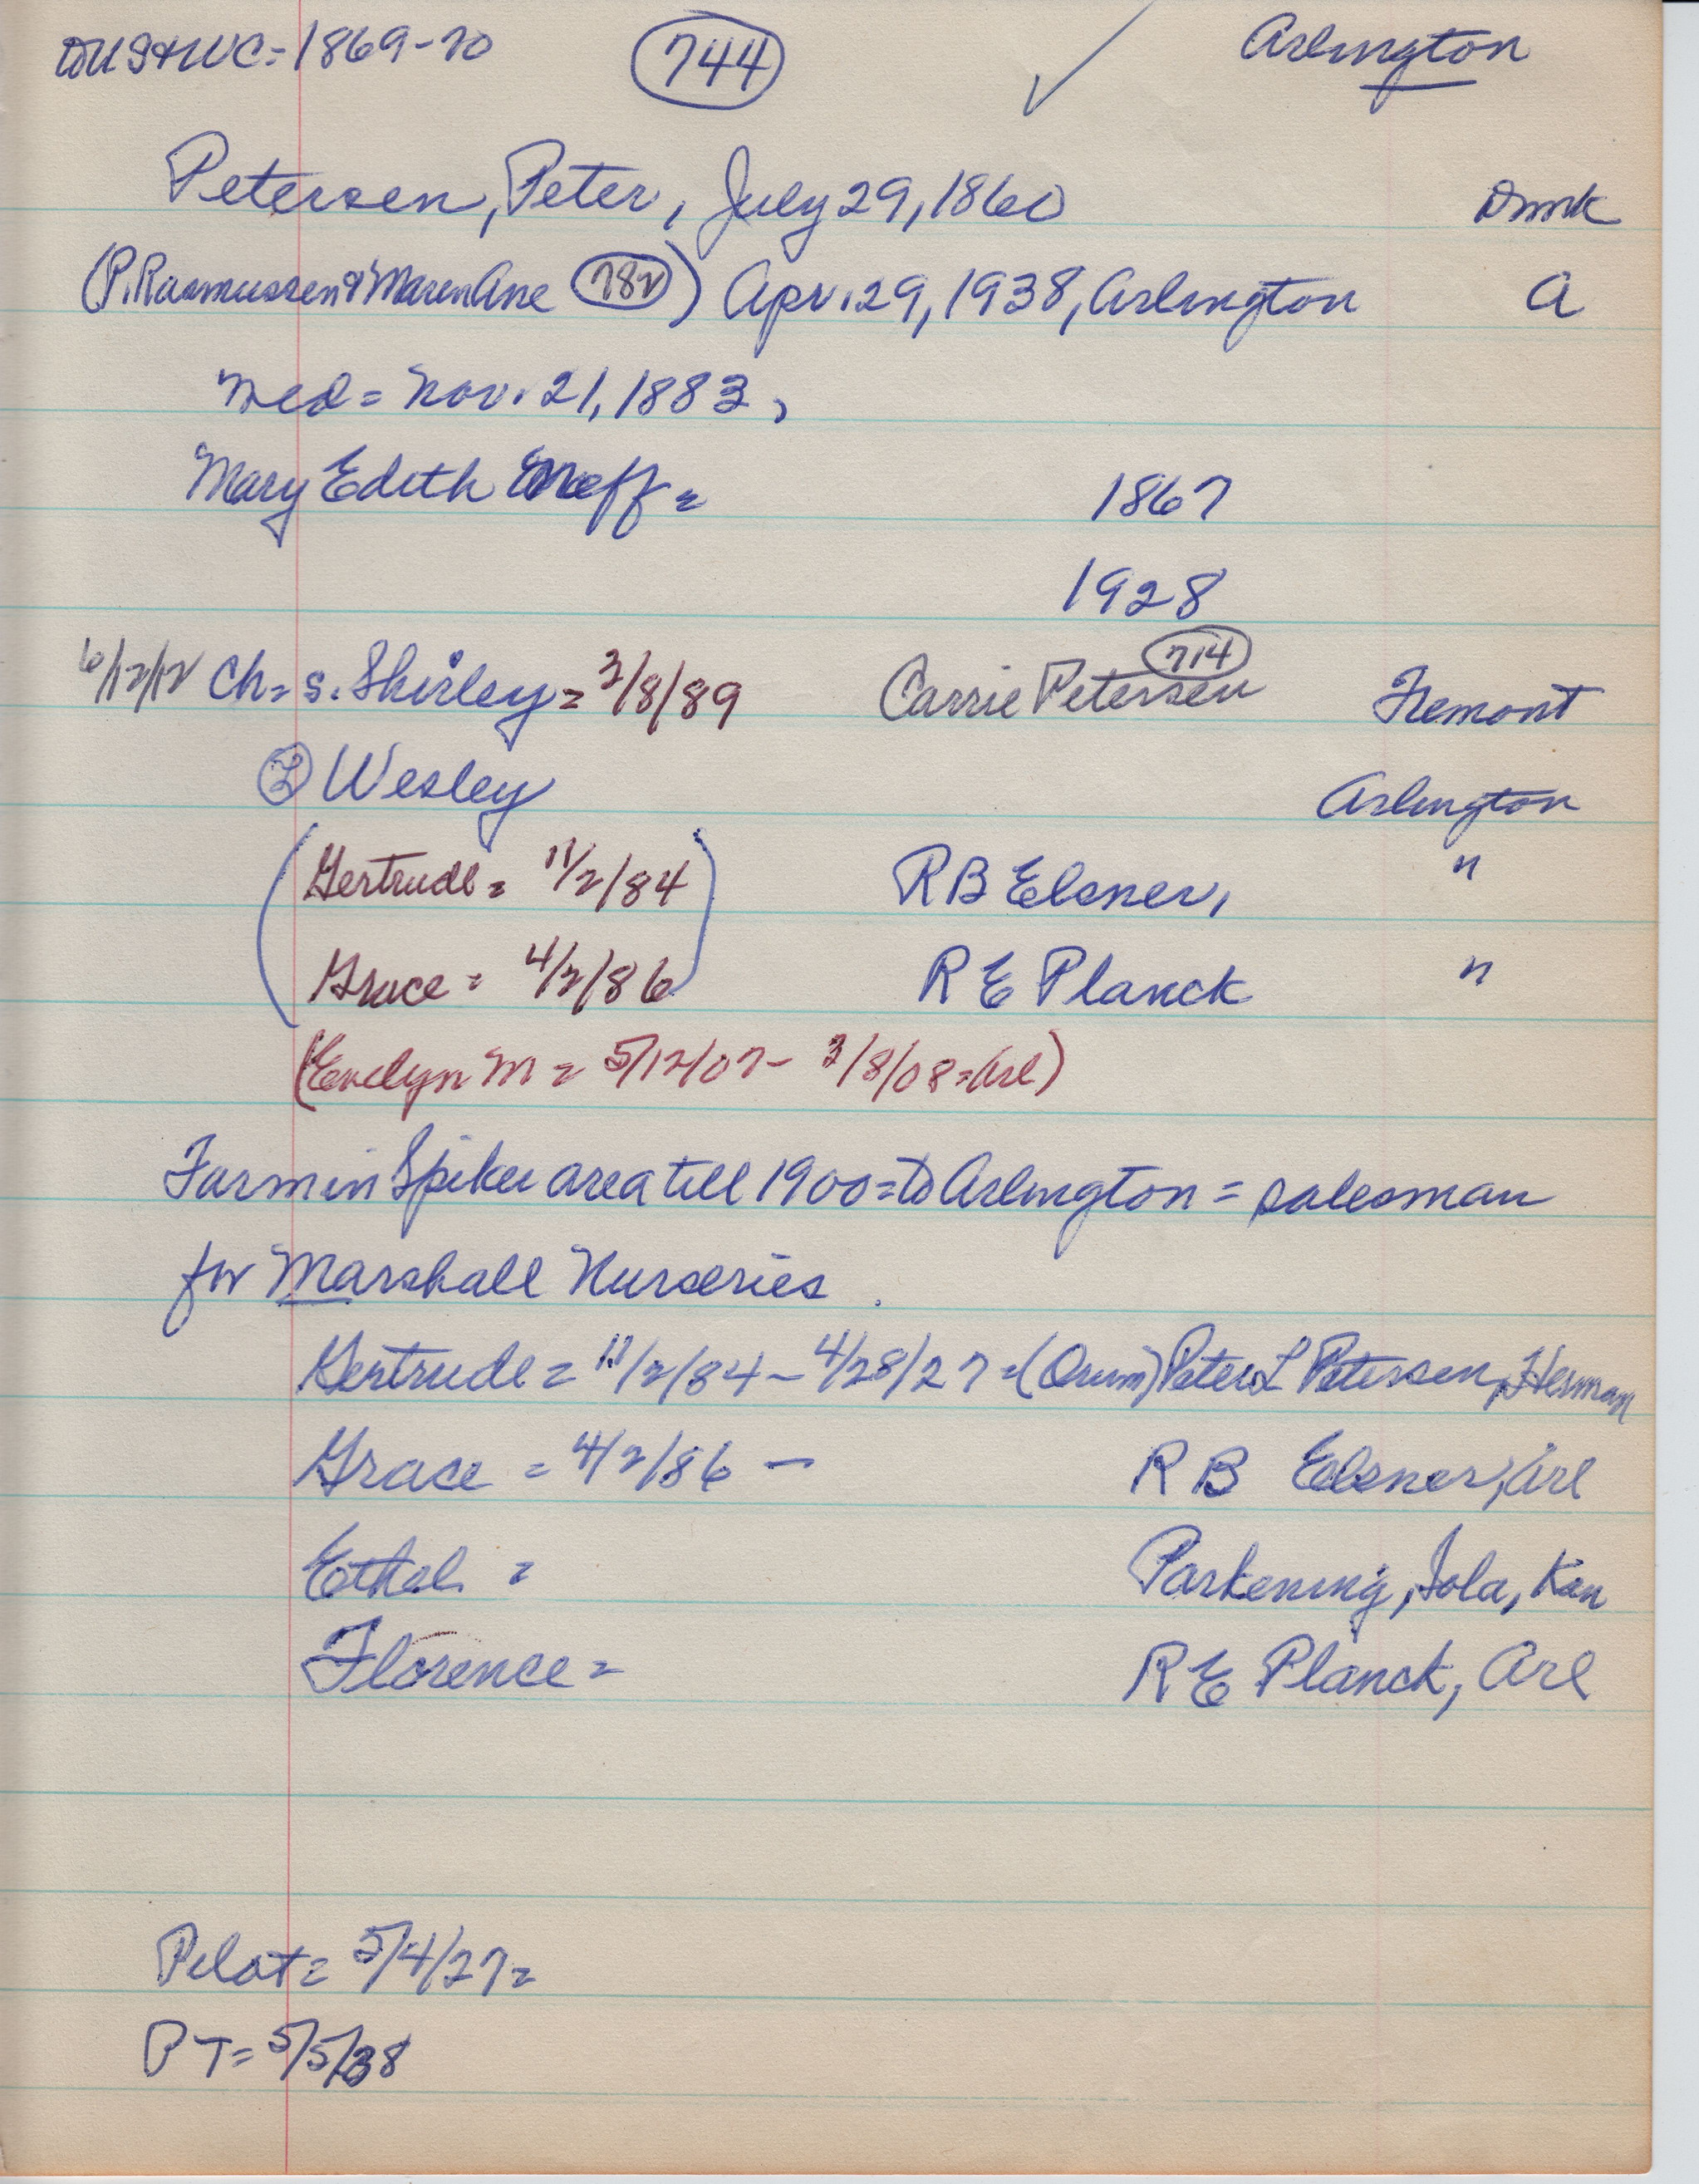 to US & WC = 1869-70 744 Arlington
Petersen, Peter, July 29, 1860 Dmrk
(P. Rasmussen & Maren Ane 782) Apr. 29, 1938, Arlington A
med = Nov. 21, 1883,
Mary Edith Neff = 1867
1928
6/12/12 Ch = s. Shirley = 3/8/89 Carrie Petersen 714 Fremont
2 Wesley Arlington
(Gertrude = 11/2/84) R B Elsner, "
Grace = 4/2/86 R E Planck "
(Evelyn M = 5/12/07 - 3/8/08 = Arl)
Farm in Spiker area till 1900 = to Arlington = salesman
for Marshall Nurseries.
Gertrude = 11/2/84 - 4/28/27 = (Orum) Peter L Petersen, Herman
Grace = 4/2/86 - R B Elsner, Arl
Ethel = Parkening, Iola, Kan
Florence = R E Planck, Arl
Pilot = 5/4/27 =
PT = 5/5/38